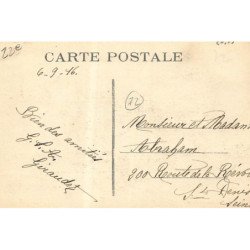 22e
CARTE POSTALE
6-9-16.
72
Bien des amitiés
Monsieur et Madame
Abraham
200 Route de la Révolte
St Denis
Seine